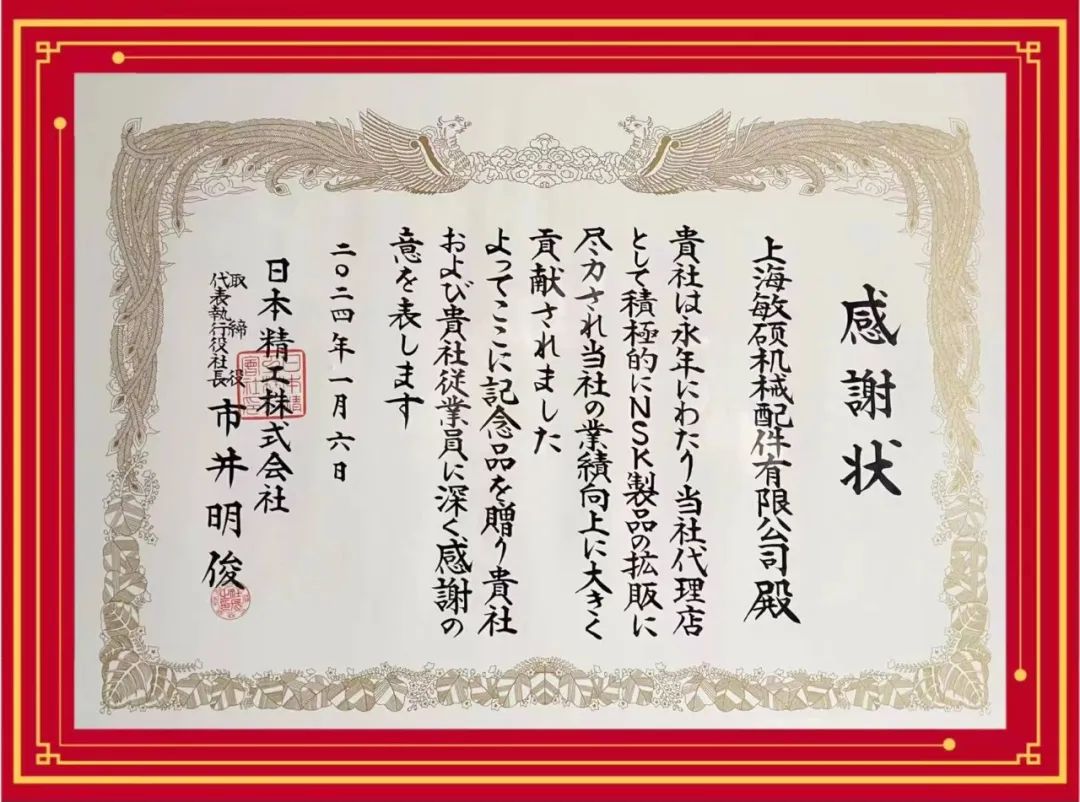 感謝状
上海敏硕机械配件有限公司殿
貴社は永年にわたり当社代理店
として積極的にNSK製品の拡販に
尽力され当社の業績向上に大きく
貢献されました
よってここに記念品を贈り貴社
および貴社従業員に深く感謝の
意を表します
二〇二四年一月六日
日本精工株式会社
取締役
代表執行役社長
市井明俊